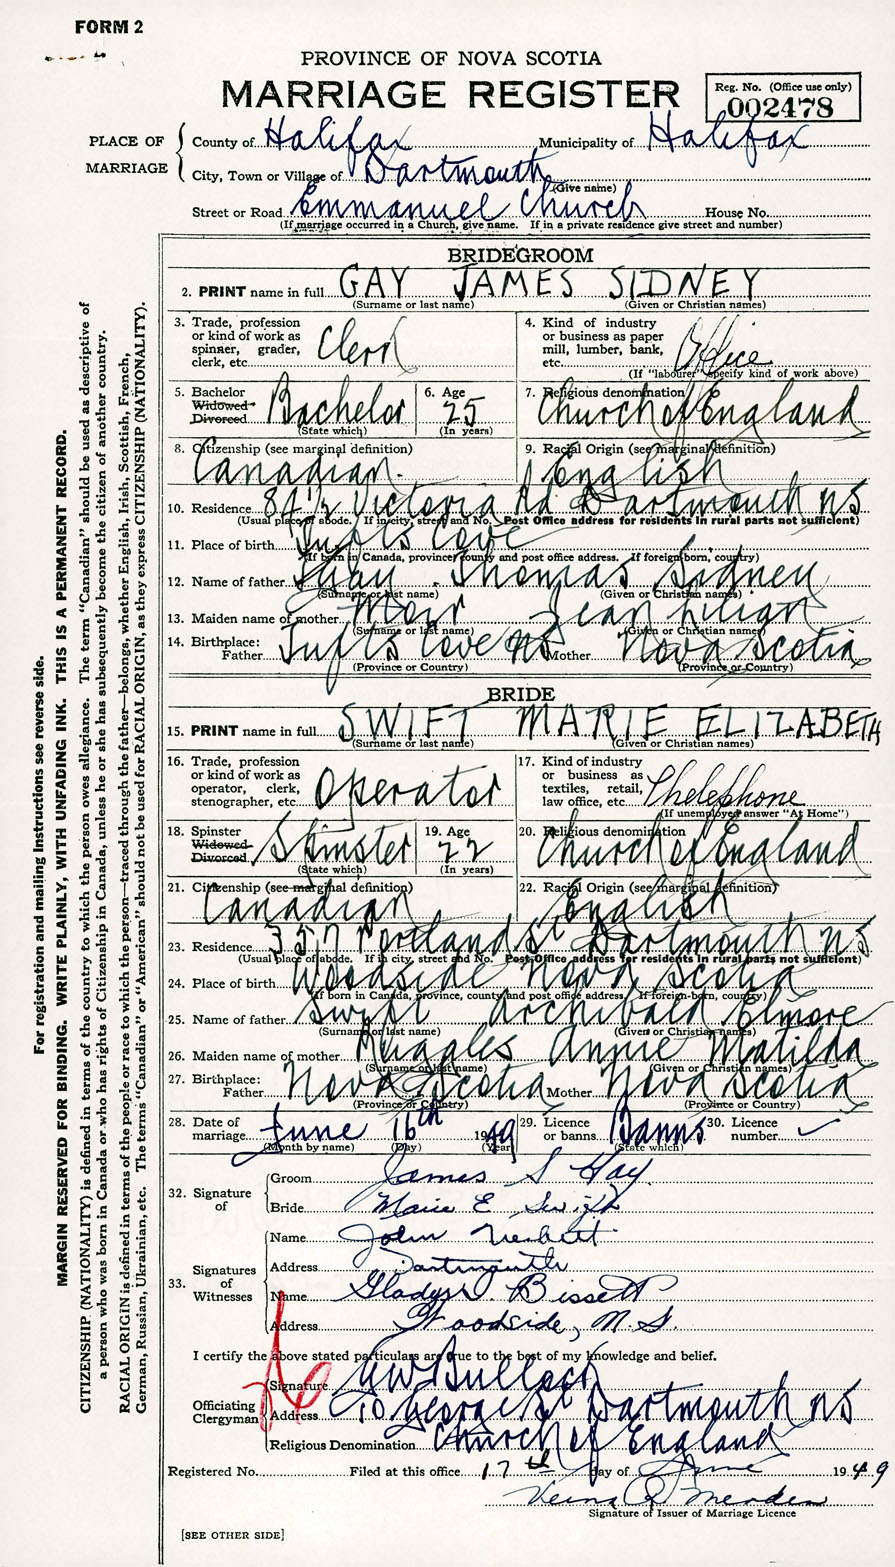 FORM 2
PROVINCE OF NOVA SCOTIA
MARRIAGE REGISTER
Reg. No. (Office use only)
002478
PLACE OF MARRIAGE
County of Halifax Municipality of Halifax
City, Town or Village of Dartmouth
(Give name)
Street or Road Emmanuel Church House No.
(If marriage occurred in a Church, give name. If in a private residence give street and number)
BRIDEGROOM
2. PRINT name in full GAY JAMES SIDNEY
(Surname or last name) (Given or Christian names)
3. Trade, profession or kind of work as spinner, grader, clerk, etc. Clerk
4. Kind of industry or business as paper mill, lumber, bank, etc. Office
(If "labourer" specify kind of work above)
5. Bachelor Widowed Divorced Bachelor
(State which)
6. Age 25
(In years)
7. Religious denomination Church of England
8. Citizenship (see marginal definition) Canadian
9. Racial Origin (see marginal definition) English
10. Residence 84 1/2 Victoria Rd Dartmouth NS
(Usual place of abode. If in city, street and No. Post Office address for residents in rural parts not sufficient)
11. Place of birth Tufts Cove
(If born in Canada, province, county and post office address. If foreign born, country)
12. Name of father Gay Thomas Sidney
(Surname or last name) (Given or Christian names)
13. Maiden name of mother Moir Jean Lilian
(Surname or last name) (Given or Christian names)
14. Birthplace: Father Tufts Cove NS Mother Nova Scotia
(Province or Country) (Province or Country)
BRIDE
15. PRINT name in full SWIFT MARIE ELIZABETH
(Surname or last name) (Given or Christian names)
16. Trade, profession or kind of work as operator, clerk, stenographer, etc. Operator
17. Kind of industry or business as textiles, retail, law office, etc. Thelephone
(If unemployed answer "At Home")
18. Spinster Widowed Divorced Spinster
(State which)
19. Age 22
(In years)
20. Religious denomination Church of England
21. Citizenship (see marginal definition) Canadian
22. Racial Origin (see marginal definition) English
23. Residence 357 Portland St Dartmouth NS
(Usual place of abode. If in city, street and No. Post Office address for residents in rural parts not sufficient)
24. Place of birth Woodside Nova Scotia
(If born in Canada, province, county and post office address. If foreign-born, country)
25. Name of father Swift Archibald Elmore
(Surname or last name) (Given or Christian names)
26. Maiden name of mother Ruggles Annie Matilda
(Surname or last name) (Given or Christian names)
27. Birthplace: Father Nova Scotia Mother Nova Scotia
(Province or Country) (Province or Country)
28. Date of marriage June 16th 1949
(Month by name) (Day) (Year)
29. Licence or banns Banns
(State which)
30. Licence number
32. Signature of
Groom James S Gay
Bride Marie E Swift
33. Signatures of Witnesses
Name John
Address Dartmouth
Name Gladys Bissett
Address Woodside, N.S.
I certify the above stated particulars are true to the best of my knowledge and belief.
Officiating Clergyman
Signature GW Bullock
Address 10 George St Dartmouth NS
Religious Denomination Church of England
Registered No. Filed at this office 17th day of June 1949
Signature of Issuer of Marriage Licence
[SEE OTHER SIDE]
For registration and mailing instructions see reverse side.
MARGIN RESERVED FOR BINDING. WRITE PLAINLY, WITH UNFADING INK. THIS IS A PERMANENT RECORD.
CITIZENSHIP (NATIONALITY) is defined in terms of the country to which the person owes allegiance. The term "Canadian" should be used as descriptive of
a person who was born in Canada or who has rights of Citizenship in Canada, unless he or she has subsequently become the citizen of another country.
RACIAL ORIGIN is defined in terms of the people or race to which the person—traced through the father—belongs, whether English, Irish, Scottish, French,
German, Russian, Ukrainian, etc. The terms "Canadian" or "American" should not be used for RACIAL ORIGIN, as they express CITIZENSHIP (NATIONALITY).